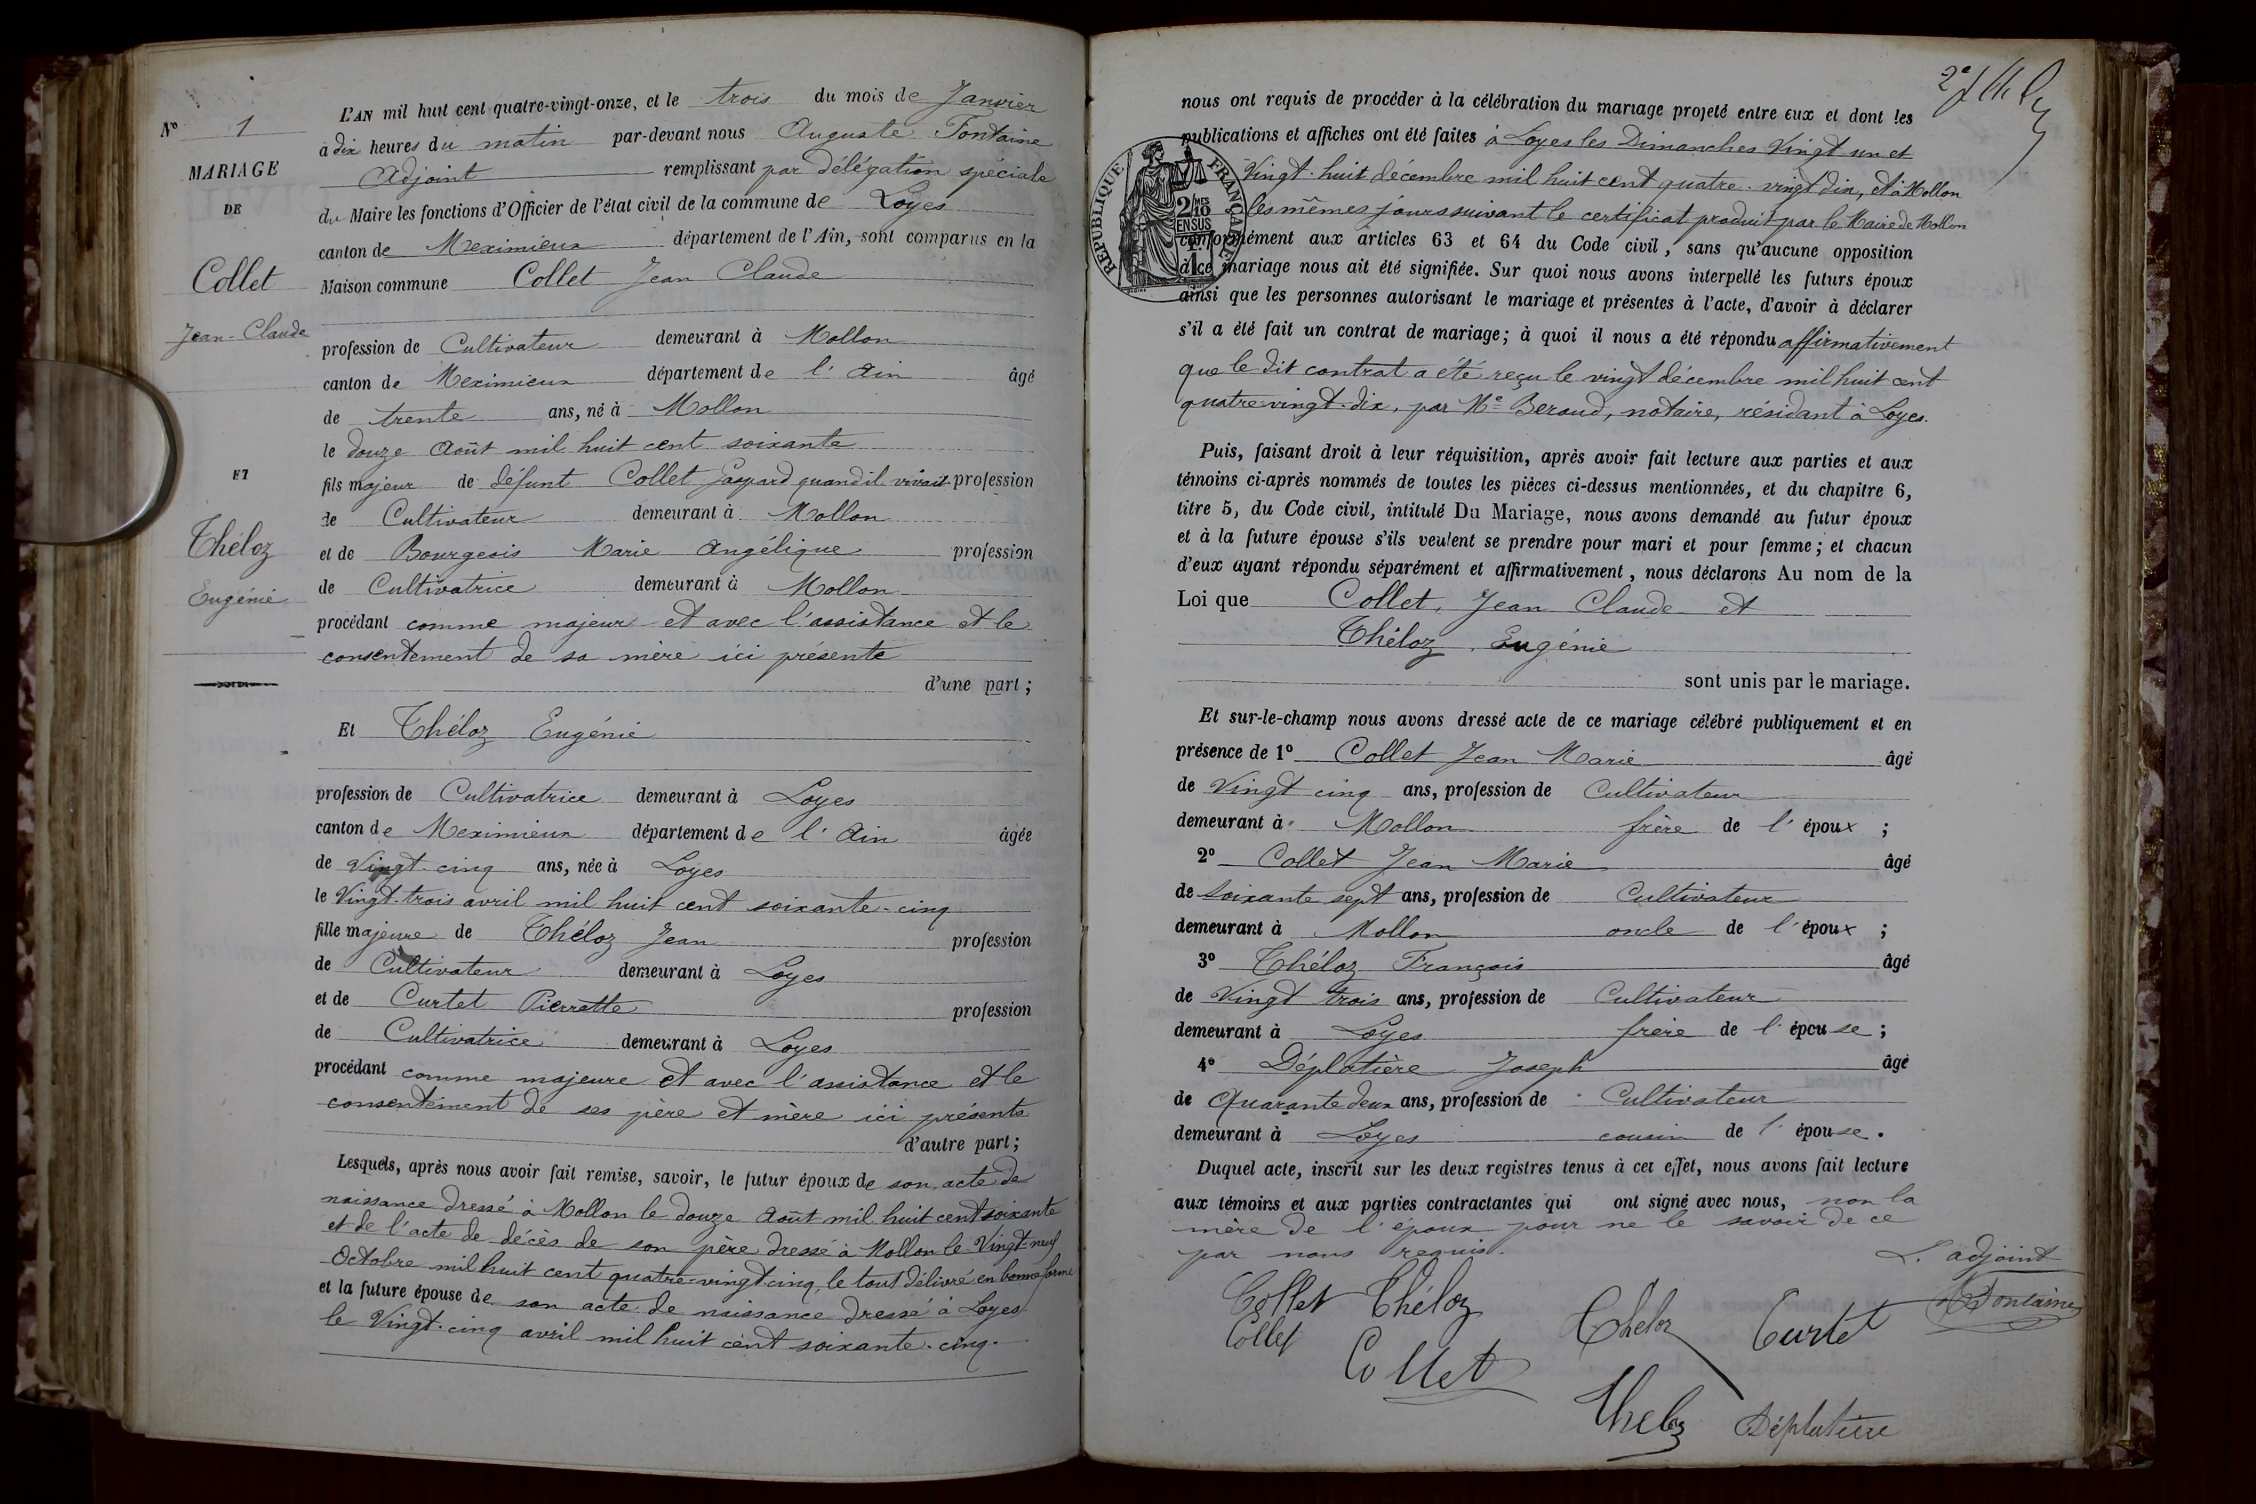 N° 1
MARIAGE
DE
Collet
Jean-Claude
ET
Théloz
Eugénie
L'AN mil huit cent quatre-vingt-onze, et le trois du mois de Janvier
à dix heures du matin par-devant nous Auguste Fontaine
Adjoint remplissant par délégation spéciale
du Maire les fonctions d'Officier de l'état civil de la commune de Loyes
canton de Meximieux département de l'Ain, sont comparus en la
Maison commune Collet Jean Claude
profession de Cultivateur demeurant à Mollon
canton de Meximieux département de l'Ain âgé
de trente ans, né à Mollon
le douze Août mil huit cent soixante
fils majeur de défunt Collet Gaspard quand il vivait profession
de Cultivateur demeurant à Mollon
et de Bourgeois Marie Angélique profession
de Cultivatrice demeurant à Mollon
procédant comme majeur et avec l'assistance et le
consentement de sa mère ici présente
d'une part;
Et Théloz Eugénie
profession de Cultivatrice demeurant à Loyes
canton de Meximieux département de l'Ain âgée
de Vingt-cinq ans, née à Loyes
le Vingt-trois avril mil huit cent soixante-cinq
fille majeure de Théloz Jean profession
de Cultivateur demeurant à Loyes
et de Curtet Pierrette profession
de Cultivatrice demeurant à Loyes
procédant comme majeure et avec l'assistance et le
consentement de ses père et mère ici présents
d'autre part;
Lesquels, après nous avoir fait remise, savoir, le futur époux de son acte de
naissance dressé à Mollon le douze Août mil huit cent soixante
et de l'acte de décès de son père dressé à Mollon le Vingt-neuf
Octobre mil huit cent quatre-vingt cinq, le tout délivré en bonne forme
et la future épouse de son acte de naissance dressé à Loyes
le Vingt-cinq avril mil huit cent soixante-cinq.
nous ont requis de procéder à la célébration du mariage projeté entre eux et dont les
publications et affiches ont été faites à Loyes les Dimanches Vingt un et
Vingt-huit décembre mil huit cent quatre-vingt dix, et à Mollon
les mêmes jours suivant le certificat produit par le Maire de Mollon
conformément aux articles 63 et 64 du Code civil, sans qu'aucune opposition
à ce mariage nous ait été signifiée. Sur quoi nous avons interpellé les futurs époux
ainsi que les personnes autorisant le mariage et présentes à l'acte, d'avoir à déclarer
s'il a été fait un contrat de mariage; à quoi il nous a été répondu affirmativement
que le dit contrat a été reçu le vingt décembre mil huit cent
quatre-vingt-dix, par Me Beraud, notaire, résidant à Loyes.
RÉPUBLIQUE FRANÇAISE
2/10
MES
EN SUS
Puis, faisant droit à leur réquisition, après avoir fait lecture aux parties et aux
témoins ci-après nommés de toutes les pièces ci-dessus mentionnées, et du chapitre 6,
titre 5, du Code civil, intitulé Du Mariage, nous avons demandé au futur époux
et à la future épouse s'ils veulent se prendre pour mari et pour femme; et chacun
d'eux ayant répondu séparément et affirmativement, nous déclarons Au nom de la
Loi que Collet, Jean Claude et
Théloz, Eugénie
sont unis par le mariage.
Et sur-le-champ nous avons dressé acte de ce mariage célébré publiquement et en
présence de 1° Collet Jean Marie âgé
de Vingt cinq ans, profession de Cultivateur
demeurant à Mollon frère de l'époux;
2° Collet Jean Marie âgé
de soixante sept ans, profession de Cultivateur
demeurant à Mollon oncle de l'époux;
3° Théloz François âgé
de Vingt trois ans, profession de Cultivateur
demeurant à Loyes frère de l'épouse;
4° Déplatière Joseph âgé
de Quarante deux ans, profession de Cultivateur
demeurant à Loyes cousin de l'épouse.
Duquel acte, inscrit sur les deux registres tenus à cet effet, nous avons fait lecture
aux témoins et aux parties contractantes qui ont signé avec nous, non la
mère de l'époux pour ne le savoir de ce
par nous requis.
L'adjoint
Collet Théloz Theloz Curtet Fontaine
Collet
Collet
Theloz Déplatière